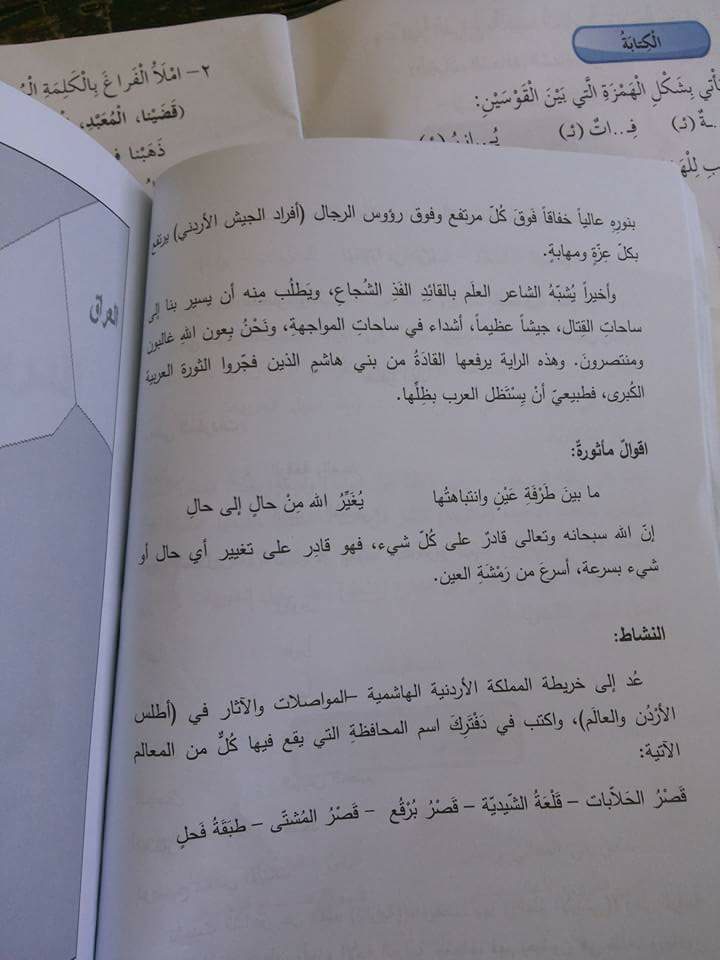 الْكِتابَةُ
تأْتي بِشَكْلِ الْهَمْزَةِ الَّتي بَيْنَ الْقَوْسَيْنِ:
ـةٌ (ئـ) فِـ..ـاتٌ (ئـ)
٢- امْلَأُ الْفَراغَ بِالْكَلِمَةِ
(قَضَيْنا، الْمُعَبَّدِ،
ذَهَبْنا
العراق
بنورِهِ عالياً خفاقاً فَوقَ كُلّ مرتفع وفوق رؤوس الرجال (أفراد الجيش الأردني) يرتفع
بكلَ عِزّةٍ ومهابةٍ.
وأخيراً يُشبّهُ الشاعر العلَم بالقائِدِ الفَذِ الشُجاعِ، ويَطلُب مِنه أن يسير بنا إلى
ساحاتِ القِتال، جيشاً عظيماً، أشداء في ساحاتِ المواجهةِ، ونَحْنُ بِعون اللهِ غالبون
ومنتصرونَ. وهذه الراية يرفعها القادَةُ من بني هاشمٍ الذين فجّروا الثورة العربية
الكُبرى، فطبيعيّ أنْ يِسْتَظل العرب بظِلِّها.
اقوالٌ مأثورةٌ:
ما بينَ طَرْفَةِ عَيْنٍ وانتباهتُها يُغَيِّرُ الله مِنْ حالٍ إلى حالِ
إنّ الله سبحانه وتعالى قادرٌ على كُلّ شيء، فهو قادِر على تغيير أي حال أو
شيء بسرعة، أسرعَ من رَمْشَةِ العين.
النشاط:
عُد إلى خريطة المملكة الأردنية الهاشمية –المواصلات والآثار في (أطلس
الأرْدُن والعالَم)، واكتب في دَفْتَرِكَ اسم المحافظةِ التي يقع فيها كُلٌّ من المعالم
الآتية:
قَصْرُ الحَلاّبات – قَلْعَةُ الشّيديّة – قَصْرُ بُرْقُع – قَصْرُ المُشتّى – طبَقَةُ فَحلٍ